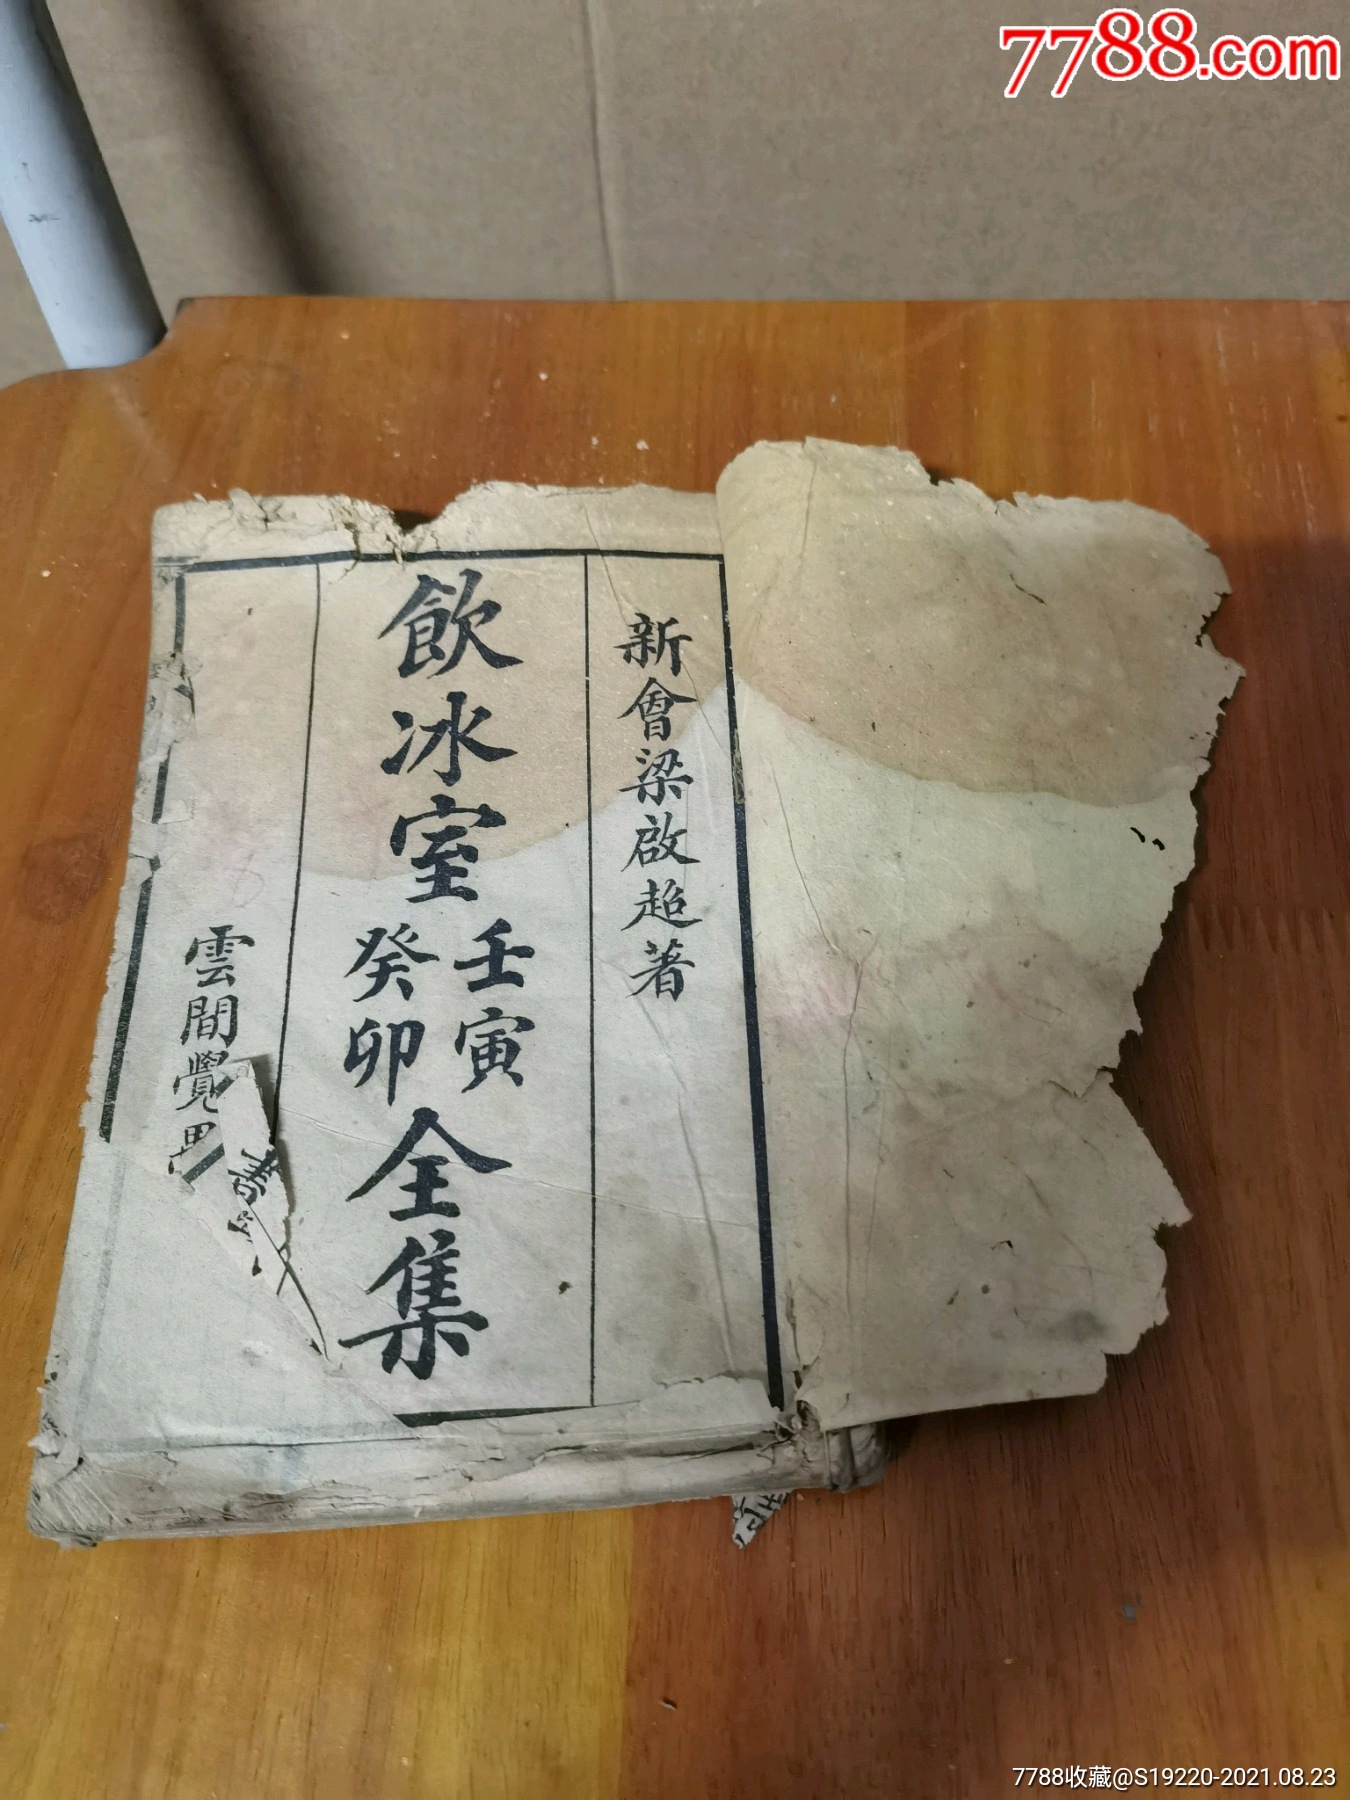 7788.com
新會梁啟超著
飲冰室壬寅癸卯全集
雲間覺
7788收藏@S19220-2021.08.23